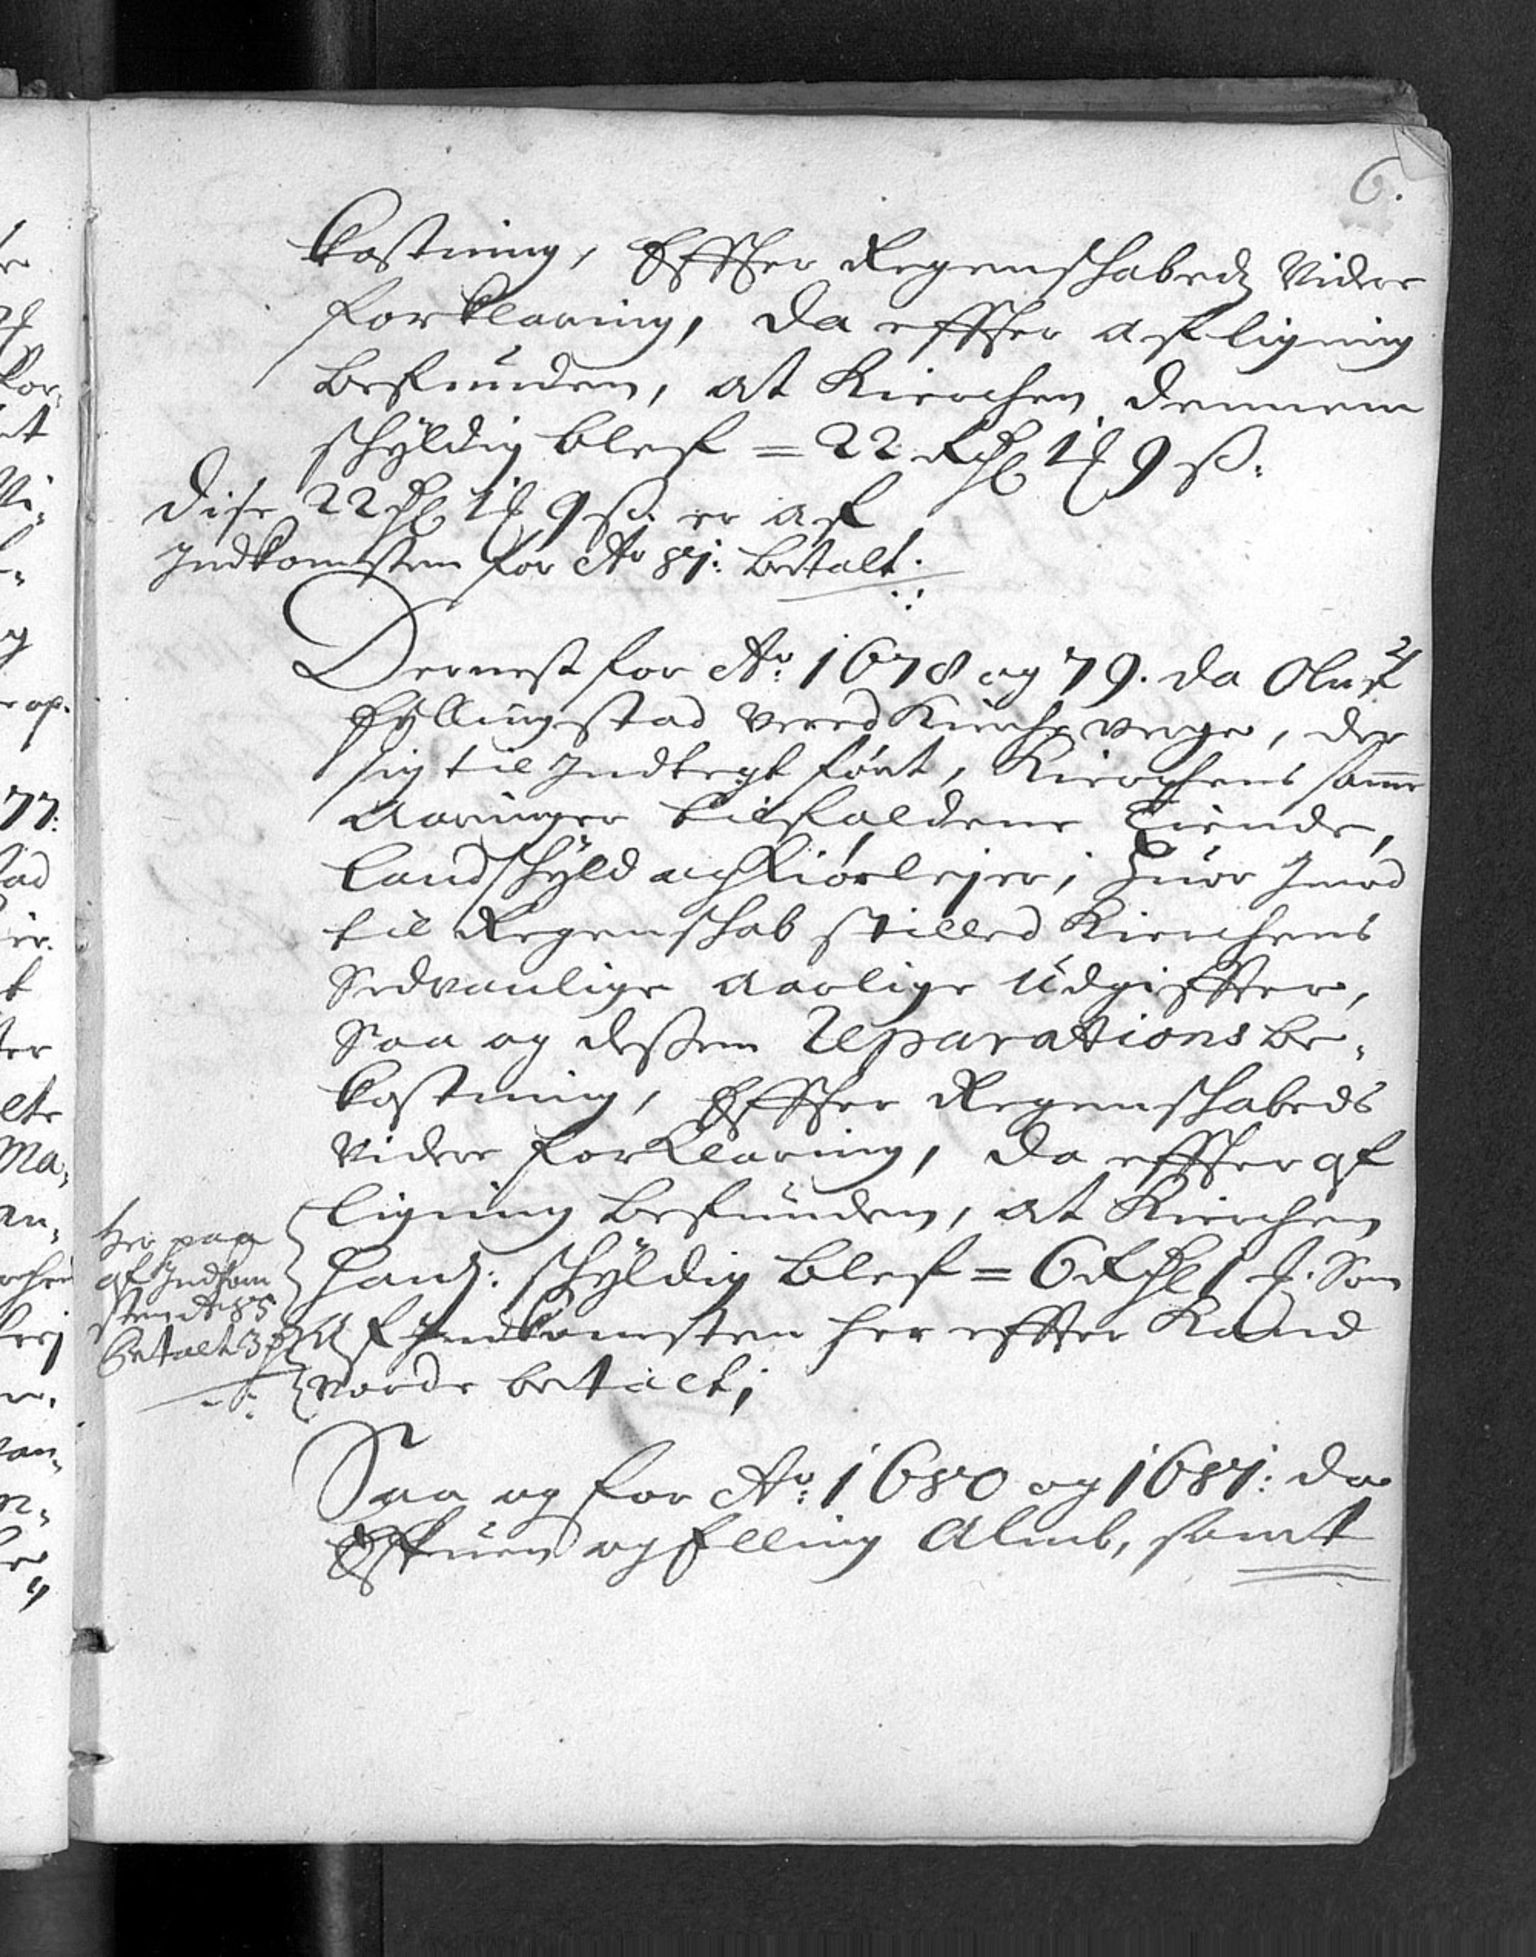 6.
kostning, Effter Regenschabedz Videre
forklaring, da effter afligning
befunden, at Kirchen dennem
schyldig blef = 22 Rdl 1 ₰ 9 ß.
Disse 22 Rdl 1 ₰ 9 ß. er af
Indkomsten for Ao 81: betalt.
Dernest for Ao: 1678 og 79. da Oluf
Fyllingstad vered Kirche verge, der
sig til Indtegt fört, Kirchens samme
Aaringer tilfaldene Tiende,
Landschyld och Kiörlejer, Huor Imod
til Regenschab stilled Kirchens
Sedvanlige Aarlige Udgiffter,
Saa og dessen Reparations be-
kostning, Effter Regenschabeds
videre forklaring, da effter af
ligning befunden, at Kirchen
hand: schyldig blef = 6 Rdl 1 ₰. Som
Af Indkomsten her effter Kand
vorde betalt;
Her paa
af Indkom
sten Ao 85
betalt 3
Saa og for Ao: 1680 og 1681: da
og Elling Almb, samt